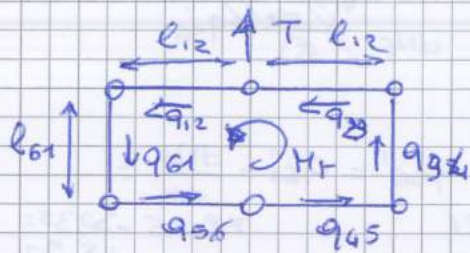 l12 T l12
q12 q23
l61 q61 MT q34
q56 q45